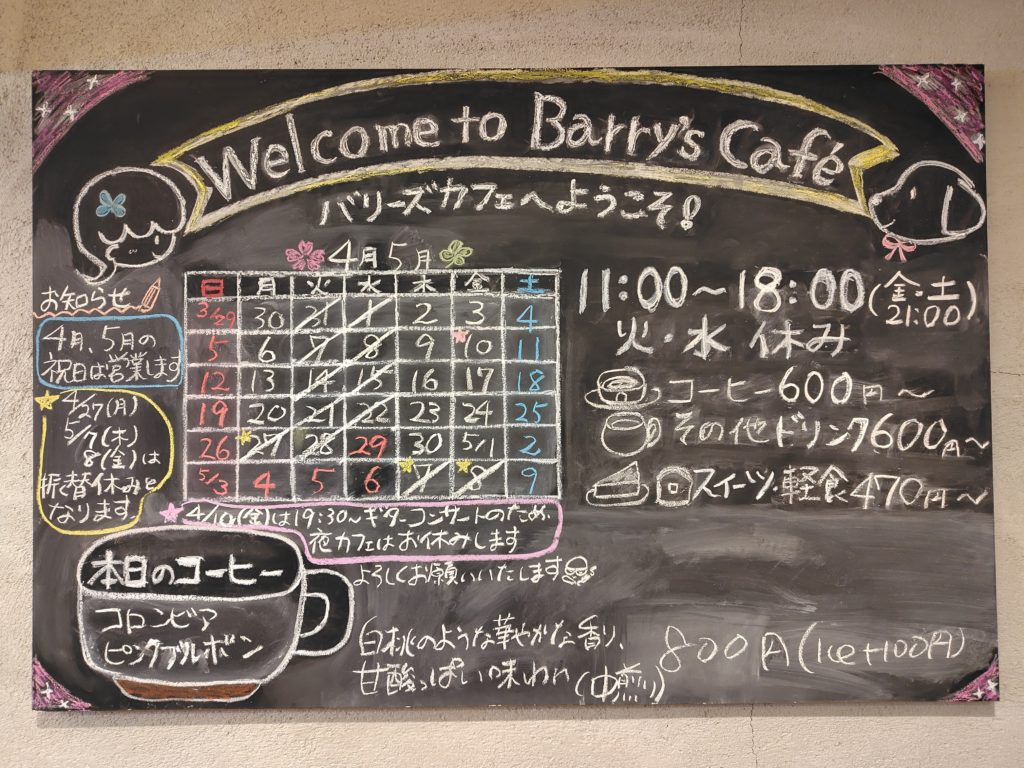 Welcome to Barry's Café
バリーズカフェへようこそ!
4月5月
日 月 火 水 木 金 土
3/29 30 31 1 2 3 4
5 6 7 8 9 10 11
12 13 14 15 16 17 18
19 20 21 22 23 24 25
26 27 28 29 30 5/1 2
5/3 4 5 6 7 8 9
お知らせ
4月、5月の
祝日は営業します
4/27(月)
5/7(木)
8(金)は
振替休みと
なります。
4/10(金)は19:30~ギターコンサートのため、
夜カフェはお休みします
よろしくお願いいたします
11:00~18:00(金・土
21:00)
火・水 休み
コーヒー600円~
その他ドリンク600円~
スイーツ・軽食470円~
本日のコーヒー
コロンビア
ピンクブルボン
白桃のような華やかな香り、
甘酸っぱい味わい(中煎)
800円(Ice+100円)